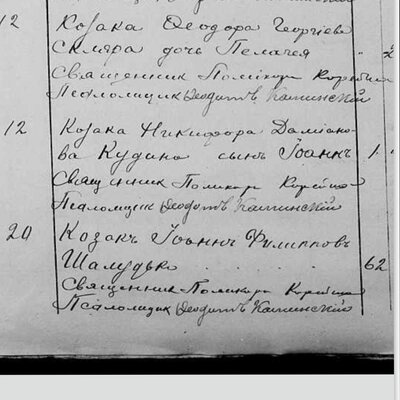 12 Козака Ѳеодора Георгіева
Скляра дочь Пелагея
Священник Поликарп
Псаломщик Ѳеодотъ Каминскій
12 Козака Никифора Даміано-
ва Кудина сынъ Іоаннъ 1.
Священник Поликарп
Псаломщик Ѳеодотъ Каминскій
20 Козакъ Іоаннъ Филипповъ
Шалудько . . . . . 62
Священник Поликарп
Псаломщик Ѳеодотъ Каминскій